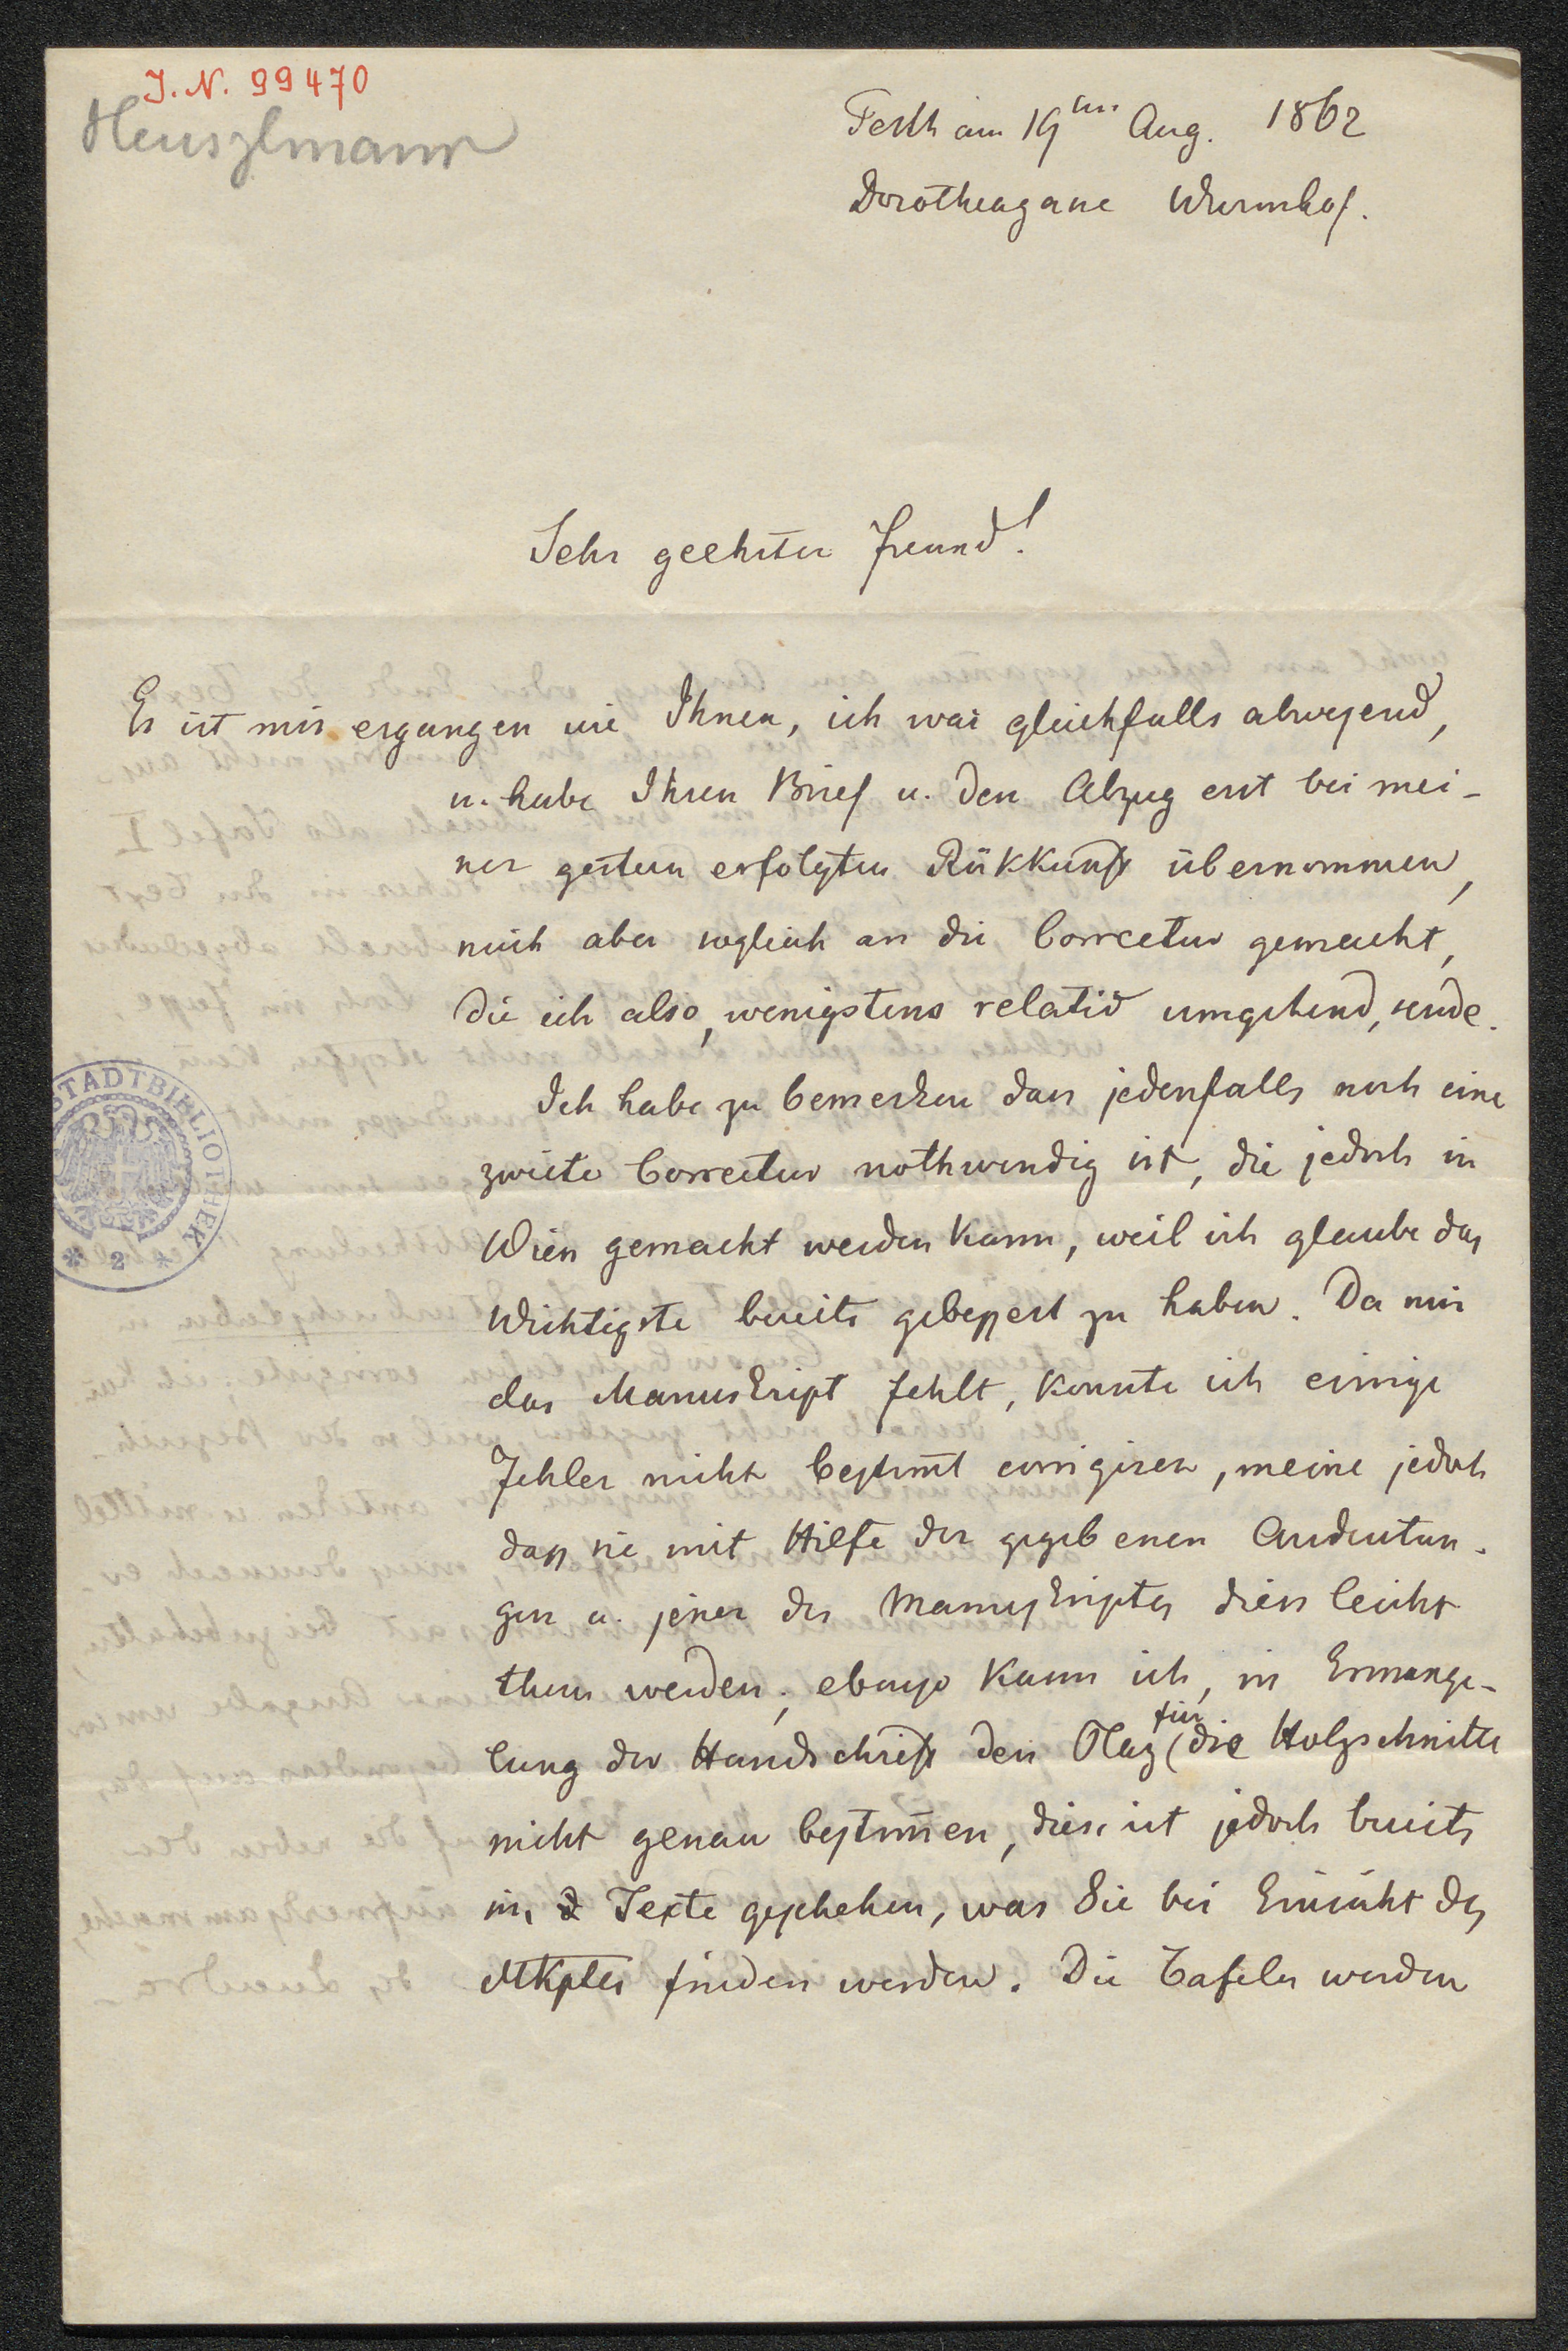 J. N. 99470
Henszlmann
Pesth am 19ten Aug. 1862
Dorotheagasse Wurmhof.
Sehr geehrter Freund!
Es ist mir ergangen wie Ihnen, ich war gleichfalls abwesend,
u. habe Ihren Brief u. den Abzug erst bei mei-
ner gestern erfolgten Rükkunft übernommen,
mich aber sogleich an die Correctur gemacht,
die ich also, wenigstens relativ umgehend, sende.
Ich habe zu bemerken dass jedenfalls noch eine
zweite Correctur nothwendig ist, die jedoch in
Wien gemacht werden kann, weil ich glaube das
Wichtigste bereits gebessert zu haben. Da mir
das Manuskript fehlt, konnte ich einige
Fehler nicht bestimt corrigiren, meine jedoch
dass sie mit Hilfe der gegebenen Andeutun-
gen u. jener des Manuskriptes dies leicht
thun werden; ebenso kann ich, in Ermange-
lung der Handschrift den Plaz für die Holzschnitte
nicht genau bestimen, dies ist jedoch bereits
im Texte geschehen, was Sie bei Einsicht des
Mkptes finden werden. Die Tafeln werden
STADTBIBLIOTHEK
* 2 *